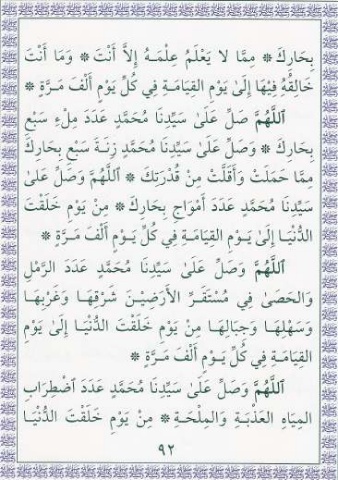 بِحَارِكَ * مِمَّا لَا يَعْلَمُ عِلْمَهُ إِلَّا أَنْتَ * وَمَا أَنْتَ
خَالِقُهُ فِيهَا إِلَى يَوْمِ القِيَامَةِ فِي كُلِّ يَوْمٍ أَلْفَ مَرَّةٍ *
اَللَّهُمَّ صَلِّ عَلَى سَيِّدِنَا مُحَمَّدٍ عَدَدَ مِلْءِ سَبْعِ
بِحَارِكَ * وَصَلِّ عَلَى سَيِّدِنَا مُحَمَّدٍ زِنَةَ سَبْعِ بِحَارِكَ
مِمَّا حَمَلَتْ وَأَقَلَّتْ مِنْ قُدْرَتِكَ * اَللَّهُمَّ وَصَلِّ عَلَى
سَيِّدِنَا مُحَمَّدٍ عَدَدَ أَمْوَاجِ بِحَارِكَ * مِنْ يَوْمِ خَلَقْتَ
الدُّنْيَا إِلَى يَوْمِ القِيَامَةِ فِي كُلِّ يَوْمٍ أَلْفَ مَرَّةٍ *
اَللَّهُمَّ وَصَلِّ عَلَى سَيِّدِنَا مُحَمَّدٍ عَدَدَ الرَّمْلِ
وَالحَصَى فِي مُسْتَقَرِّ الأَرَضِينَ شَرْقِهَا وَغَرْبِهَا
وَسَهْلِهَا وَجِبَالِهَا مِنْ يَوْمِ خَلَقْتَ الدُّنْيَا إِلَى يَوْمِ
القِيَامَةِ فِي كُلِّ يَوْمٍ أَلْفَ مَرَّةٍ *
اَللَّهُمَّ وَصَلِّ عَلَى سَيِّدِنَا مُحَمَّدٍ عَدَدَ اضْطِرَابِ
المِيَاهِ العَذْبَةِ وَالمِلْحَةِ * مِنْ يَوْمِ خَلَقْتَ الدُّنْيَا
٩٢